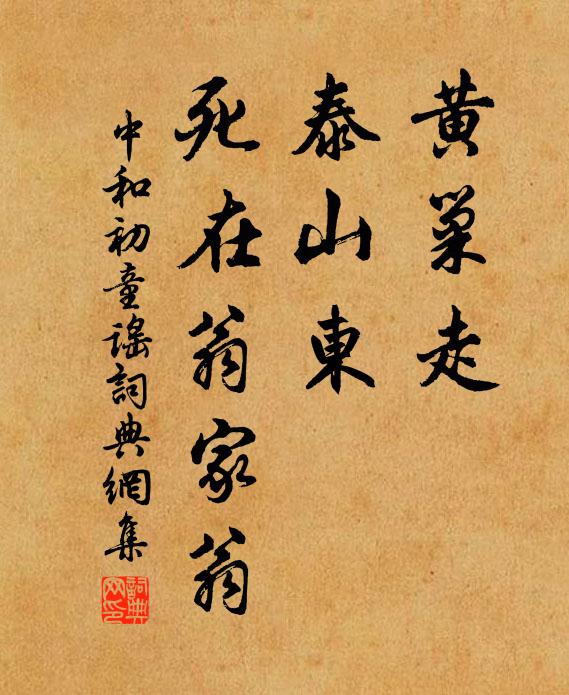 黄巢走
泰山東
死在翁家翁
中和初童謠詞典網集
詞典網印